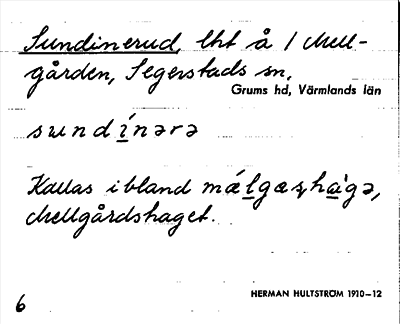 Sundinerud, lht å 1 Mell-
gården, Segerstads sn.
Grums hd, Värmlands län
sundínərə
Kallas ibland
Mellgårdshaget.
HERMAN HULTSTRÖM 1910–12
6